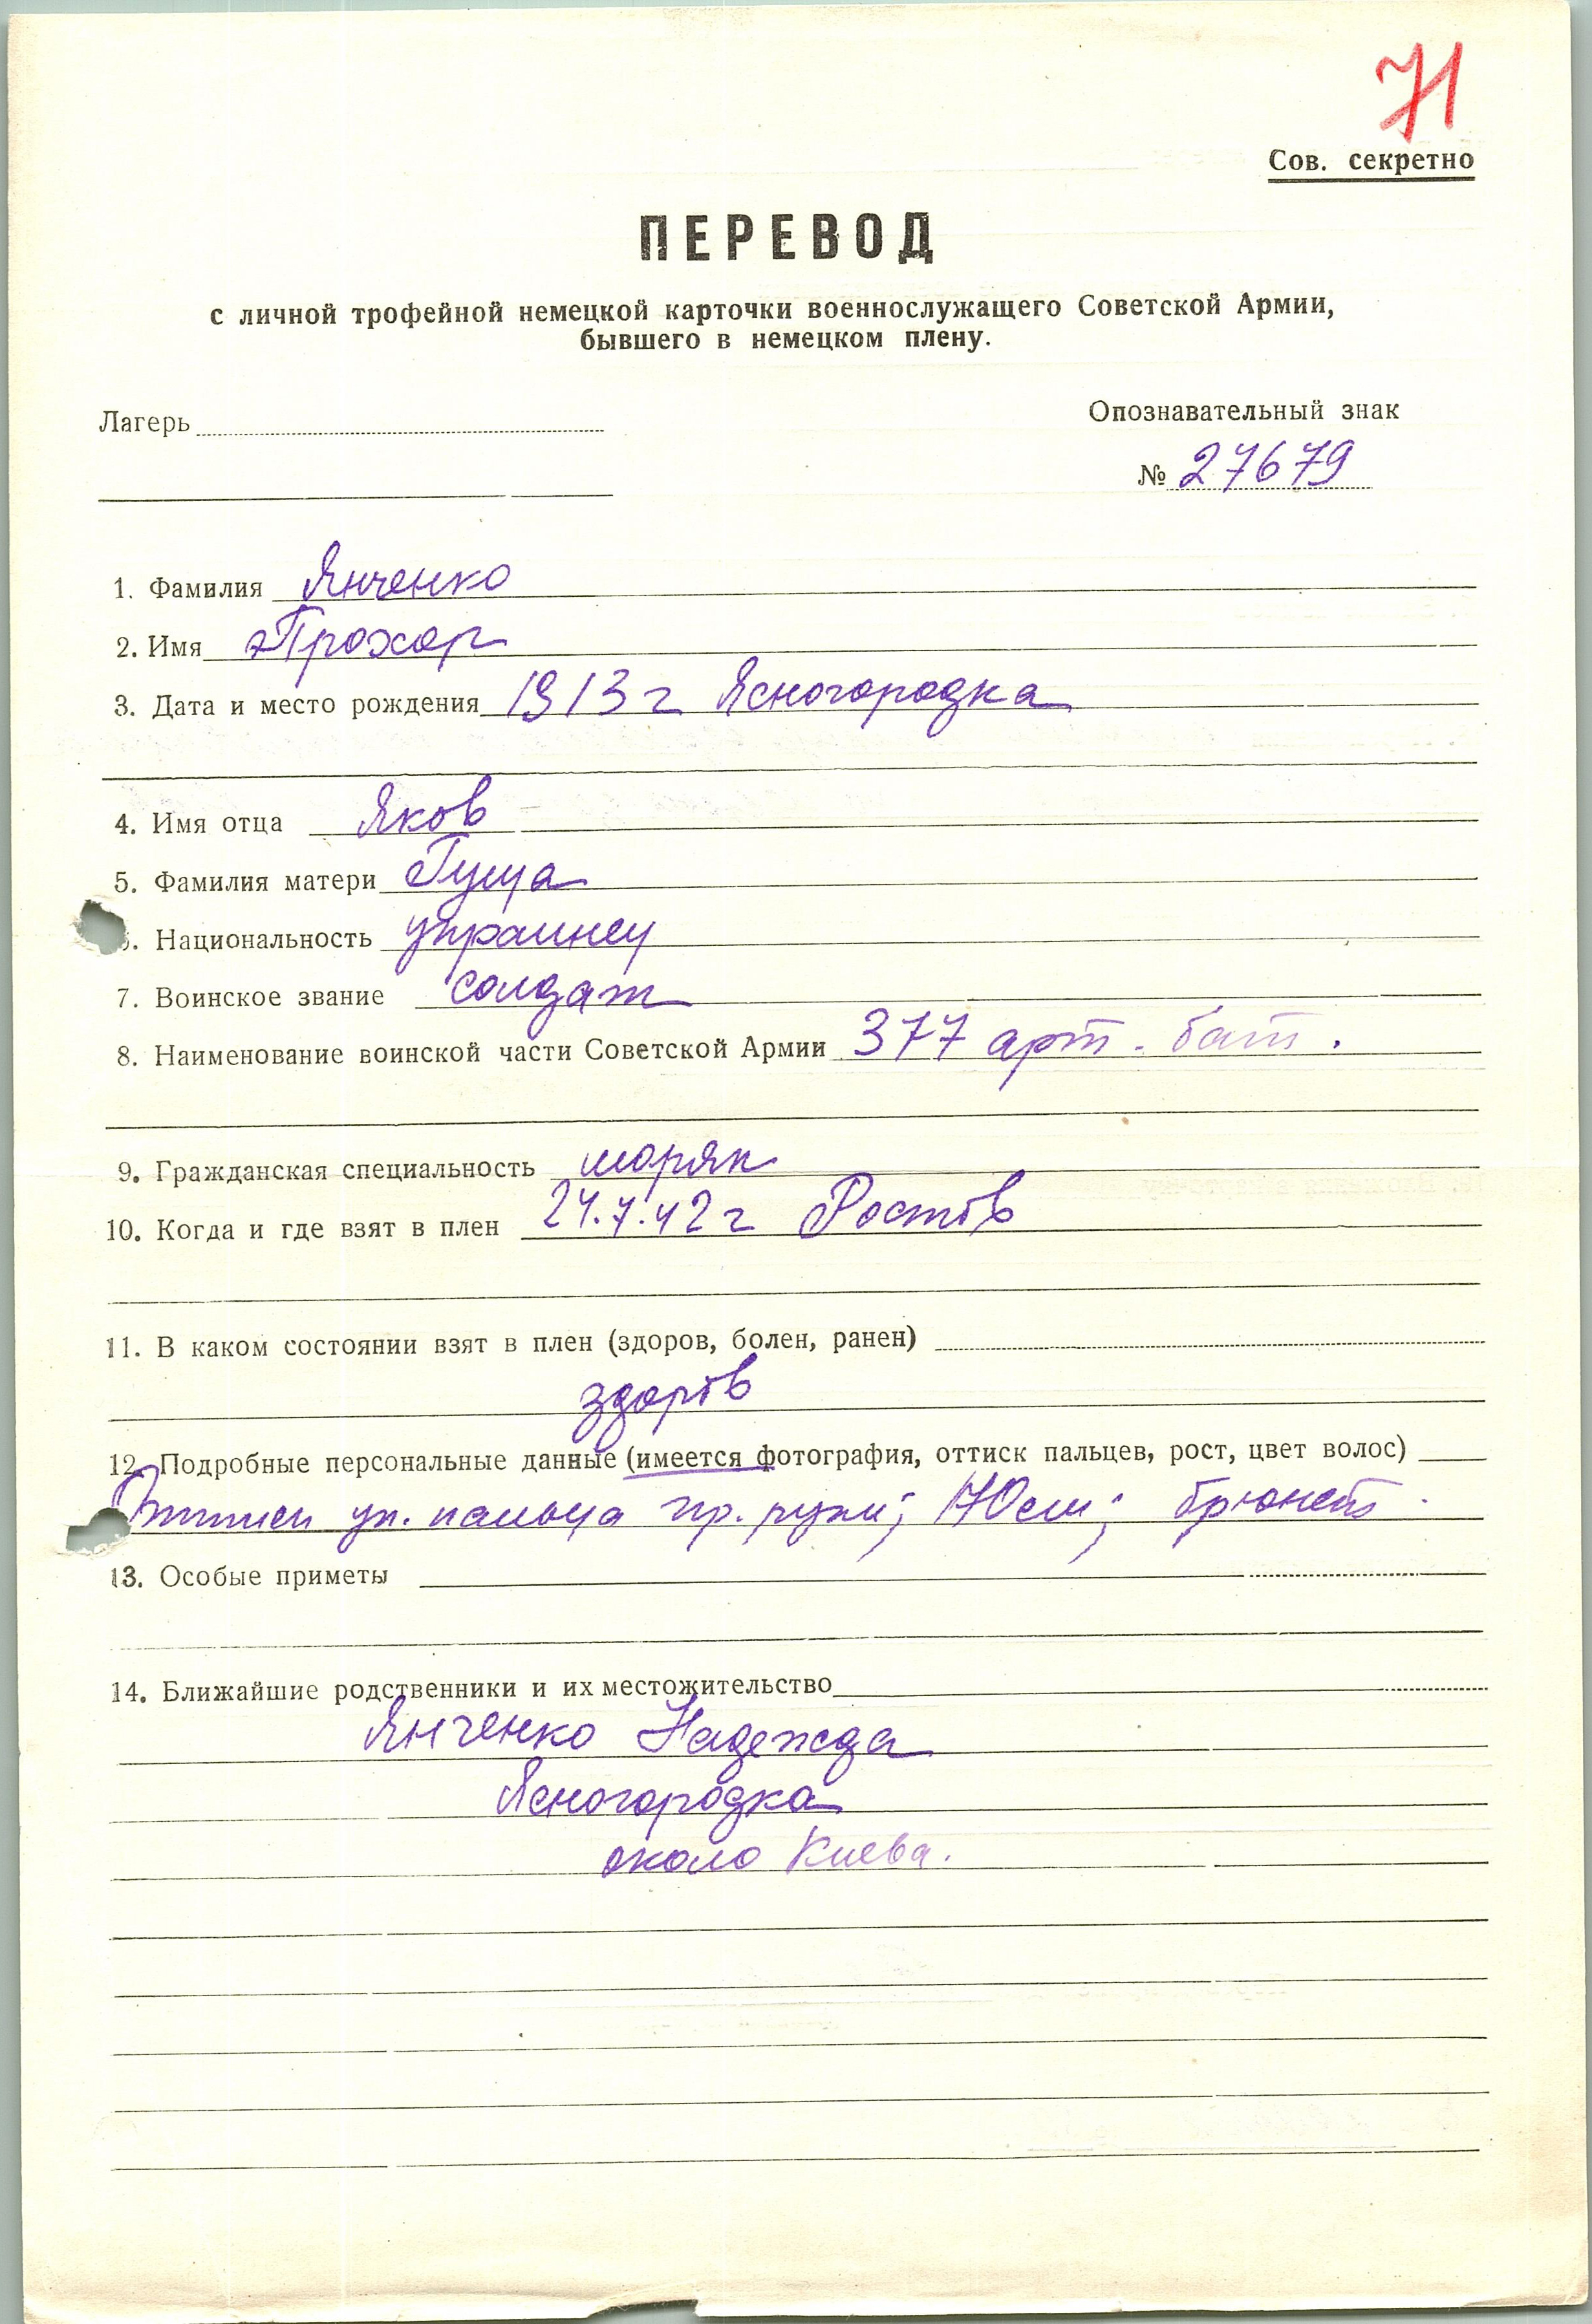 71
Сов. секретно
ПЕРЕВОД
с личной трофейной немецкой карточки военнослужащего Советской Армии,
бывшего в немецком плену.
Лагерь
Опознавательный знак
№ 27679
1. Фамилия Янченко
2. Имя Прохор
3. Дата и место рождения 1913 г Ясногородка
4. Имя отца Яков
5. Фамилия матери Гуща
. Национальность украинец
7. Воинское звание солдат
8. Наименование воинской части Советской Армии 377 арт. бат.
9. Гражданская специальность моряк
10. Когда и где взят в плен 24.7.42 г Ростов
11. В каком состоянии взят в плен (здоров, болен, ранен)
здоров
12. Подробные персональные данные (имеется фотография, оттиск пальцев, рост, цвет волос)
Оттиск ук. пальца пр. руки; 170 см; брюнет.
13. Особые приметы
14. Ближайшие родственники и их местожительство
Янченко Надежда
Ясногородка
около Киева.